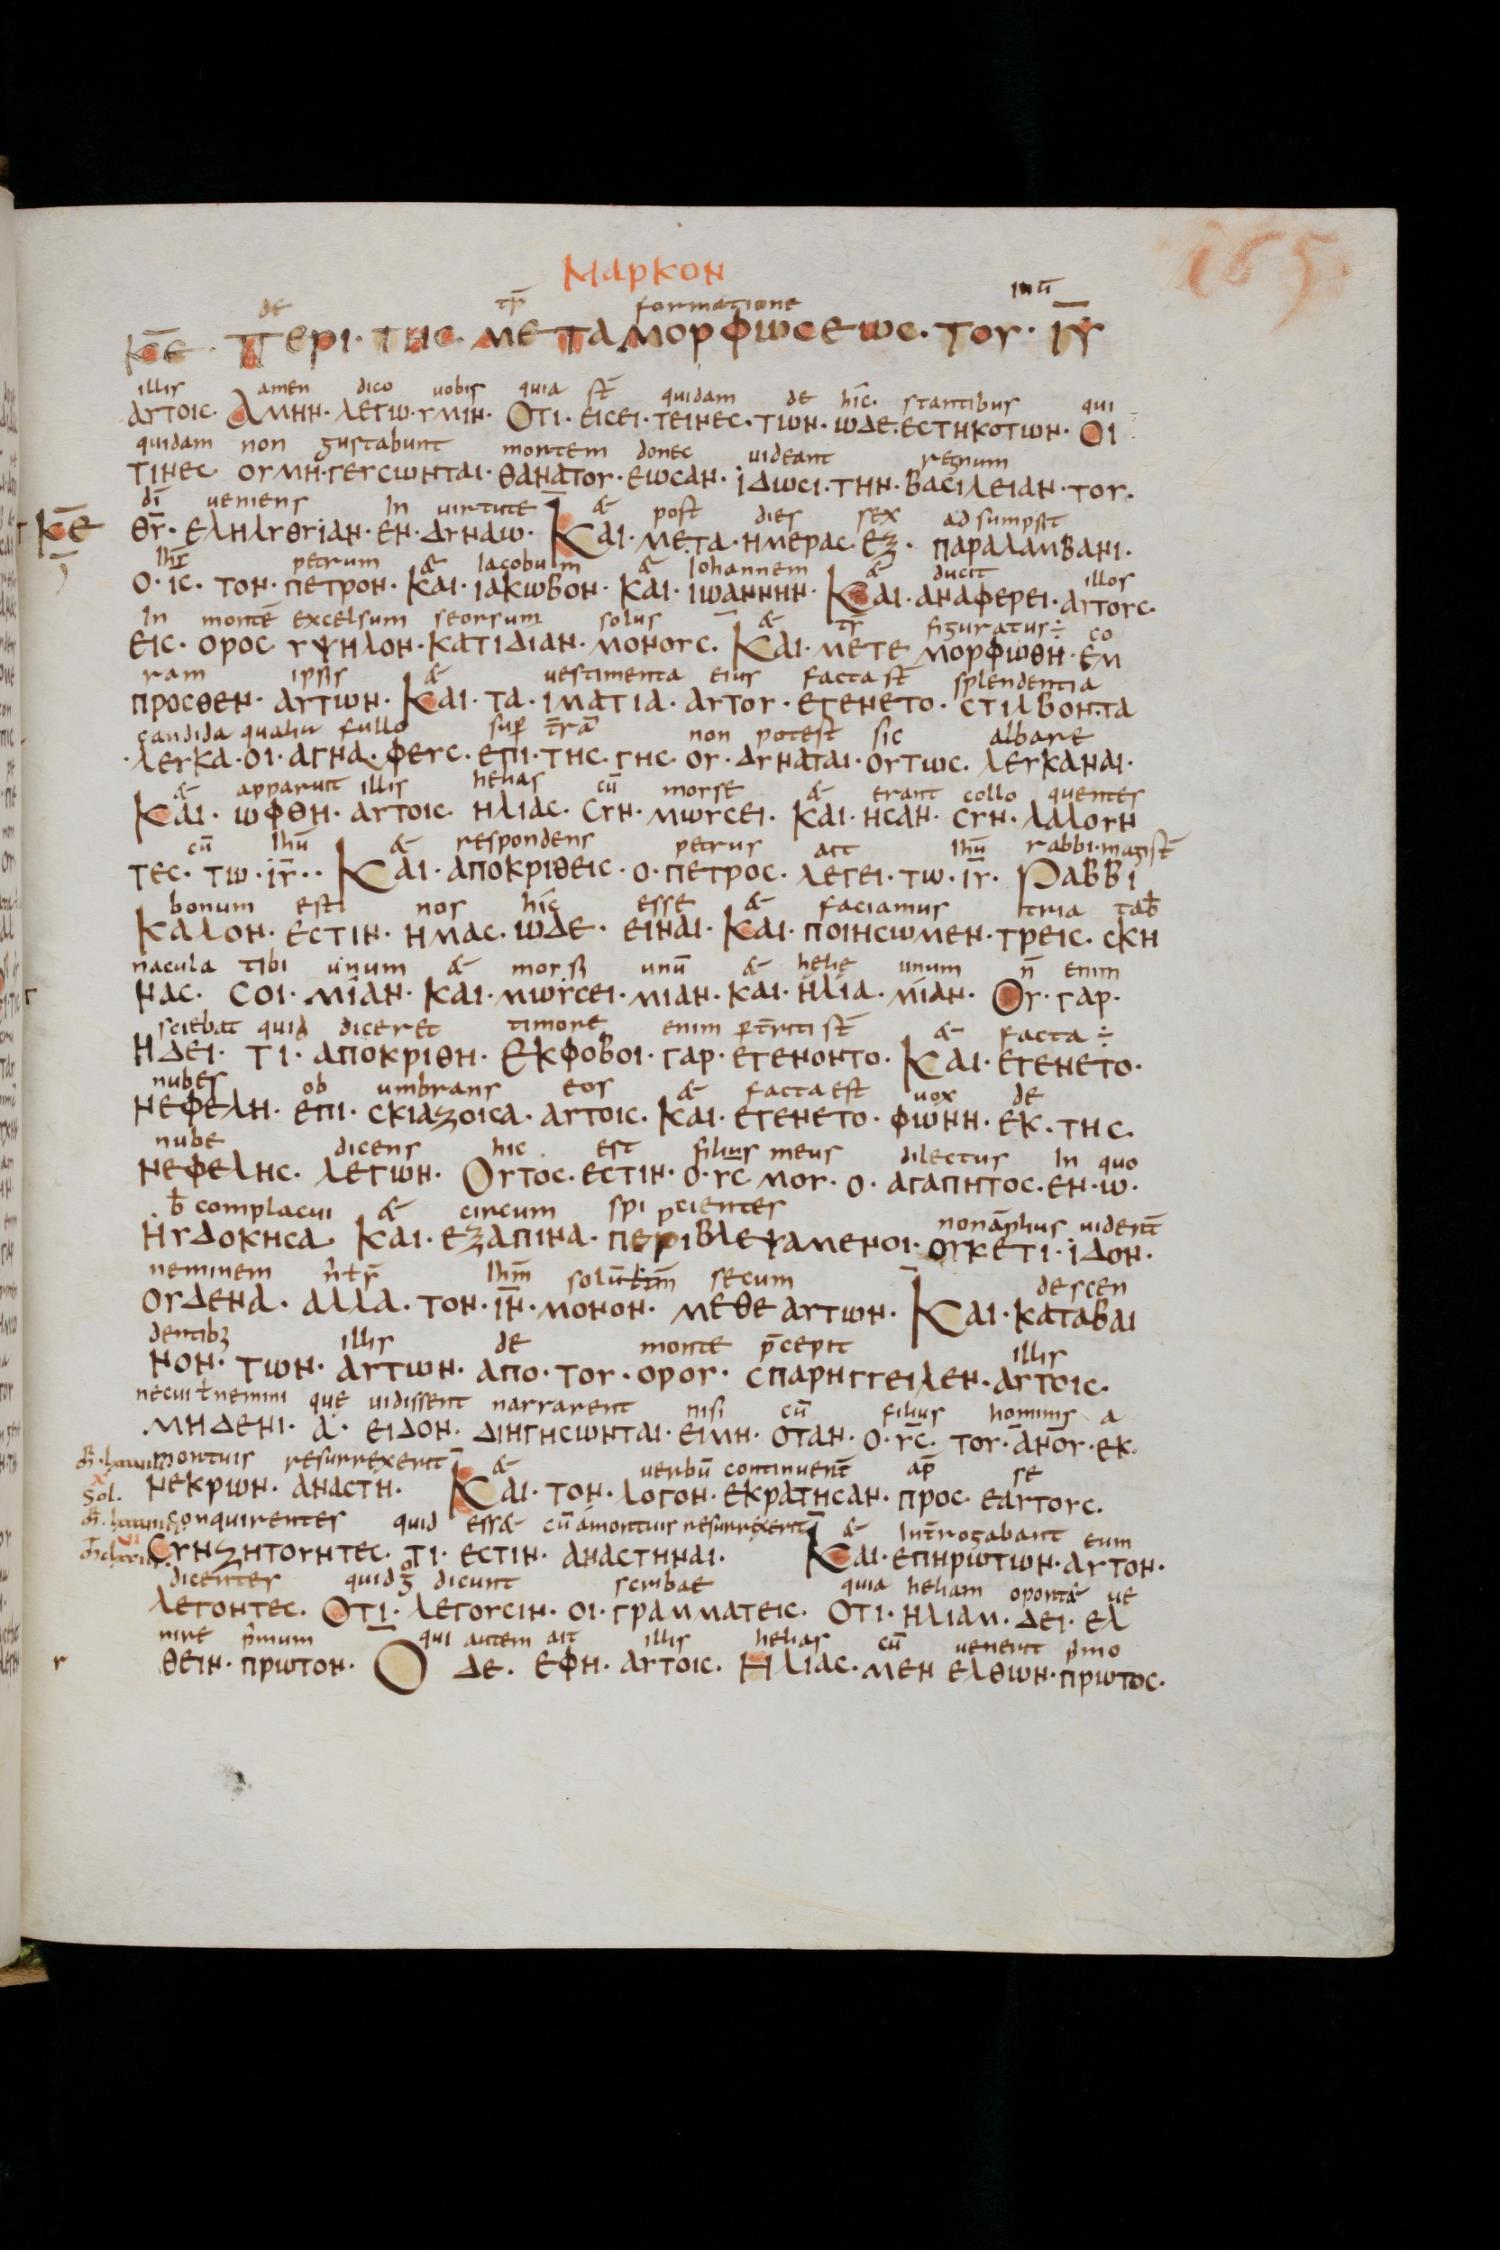 Μαρκον
165.
de tr̄ formatione ihū
κ̄ε· Περι· της· μεταμορφωσεως· του· ιῡ
illis amen dico uobis quia st̄ quidam de hic̄. stantibus qui
αυτοις· Αμην· λεγω· υμιν· Οτι· εισει· τεινες· των· ωδε· εστηκοτων· Οι
quidam non gustabunt mortem donec uideant regnum
τινες ουμη· γευσωνται· θανατου· εωσαν· ιδωσι· την· βασιλειαν· του·
dī ueniens In uirtute & post dies sex ad sumpsit
κ̄ε θῡ· εληλυθυιαν· εν· δυναω· Και· μετα· ημερας· εξ· παραλαμβανι·
Ihs̄ petrum & Iacobum & Iohannem & ducit illos
ο· ις· τον· πετρον· Και· ιακωβον· Και· ιωαννην· Και· αναφερει· αυτους·
In montē excelsum seorsum solus & tr̄ figuratus ÷ co
εις· ορος υψηλον· κατιδιαν· μονους· Και· μετε μορφωθη· εμ
ram ipsis & uestimenta eius facta st̄ splendentia
προσθεν· αυτων· Και· τα· ιματια· αυτου· εγενετο· στιλβοντα
candida qualia fullo sup̄ t̄rā non potest sic albare
λευκα· οι· αγνα· φευς· επι· της· γης· ου· δυναται· ουτως· λευκαναι·
& apparuit illis helias cū morse & erant collo quentes
Και· ωφθη· αυτοις· ηλιας· Συν· μωυσει· Και· ησαν· συν· λαλουν
cū Ihū & respondens petrus ait Ihū rabbi· magist̄
τες· τω· ιῡ·· Και· αποκριθεις· ο· πετρος· λεγει· τω· ιῡ· Ραββι
bonum est nos hic̄ esse & faciamus tria tab̄
Καλον· εστιν· ημας· ωδε· ειναι· Και· ποιησωμεν· τρεις· σκη
nacula tibi unum & unū & helię unum n̄ enim
νας· Σοι· μιαν· Και· μωυσει· μιαν· και· ηλια· μιαν· Ου· γαρ·
sciebat quid diceret timore enim st̄ & facta ÷
Ηδει· τι· αποκριθη· Εκφοβοι· γαρ· εγενοντο· Και· εγενετο·
nubes ob umbrans eos & facta est uox de
νεφελη· επι· σκιαζοισα· αυτοις· Και· εγενετο· φωνη· εκ· της·
nube dicens hic est filius meus dilectus In quo
νεφελης· λεγων· Ουτος· εστιν· ο· υς μου· ο· αγαπητος· εν· ω·
b̄ complacui & circum spi cientes nonāplius uidert̄
ηυδοκησα Και· εξαπινα· περιβλεψαμενοι· ουκετι· ιδον·
neminem Ihm̄ solū secum descen
ουδενα· αλλα· τον· ιν̄· μονον· μεθε αυτων· Και· καταβαι
dentibꝫ illis de monte p̄cepit illis
νον· των· αυτων· απο· του· ορου· σπαρηγγειλεν· αυτοις·
necui ł nemini quę uidissent narrarent nisi cū filius hominis a
μηδενι· α· ειδον· διηγησωνται· ειμη· οταν· ο· ῡς· του· ανου̅· εκ·
mortuis resurrexerit & uerbū continuert̄ ap̄ se
νεκρων· αναστη· Και· τον· λογον· εκρατησαν· προς· εαυτους·
Sol.
conquirentes quid ess& cū amortuis resurrexerit & Int̄rogabant eum
Συνζητουντες· τι· εστιν· αναστηναι· Και· επηρωτων· αυτον·
dicentes quid dicunt scribae quia heliam oportȩ̄ ue
λεγοντες· Οτι· λεγουσιν· οι· γραμματεις· Οτι· ηλιαμ· δει· ελ
nire p̄mum qui autem ait illis helias cū uenerit p̄mo
θειν· πρωτον· Ο δε· εφη· αυτοις· Ηλιας· μεν ελθων· πρωτος·